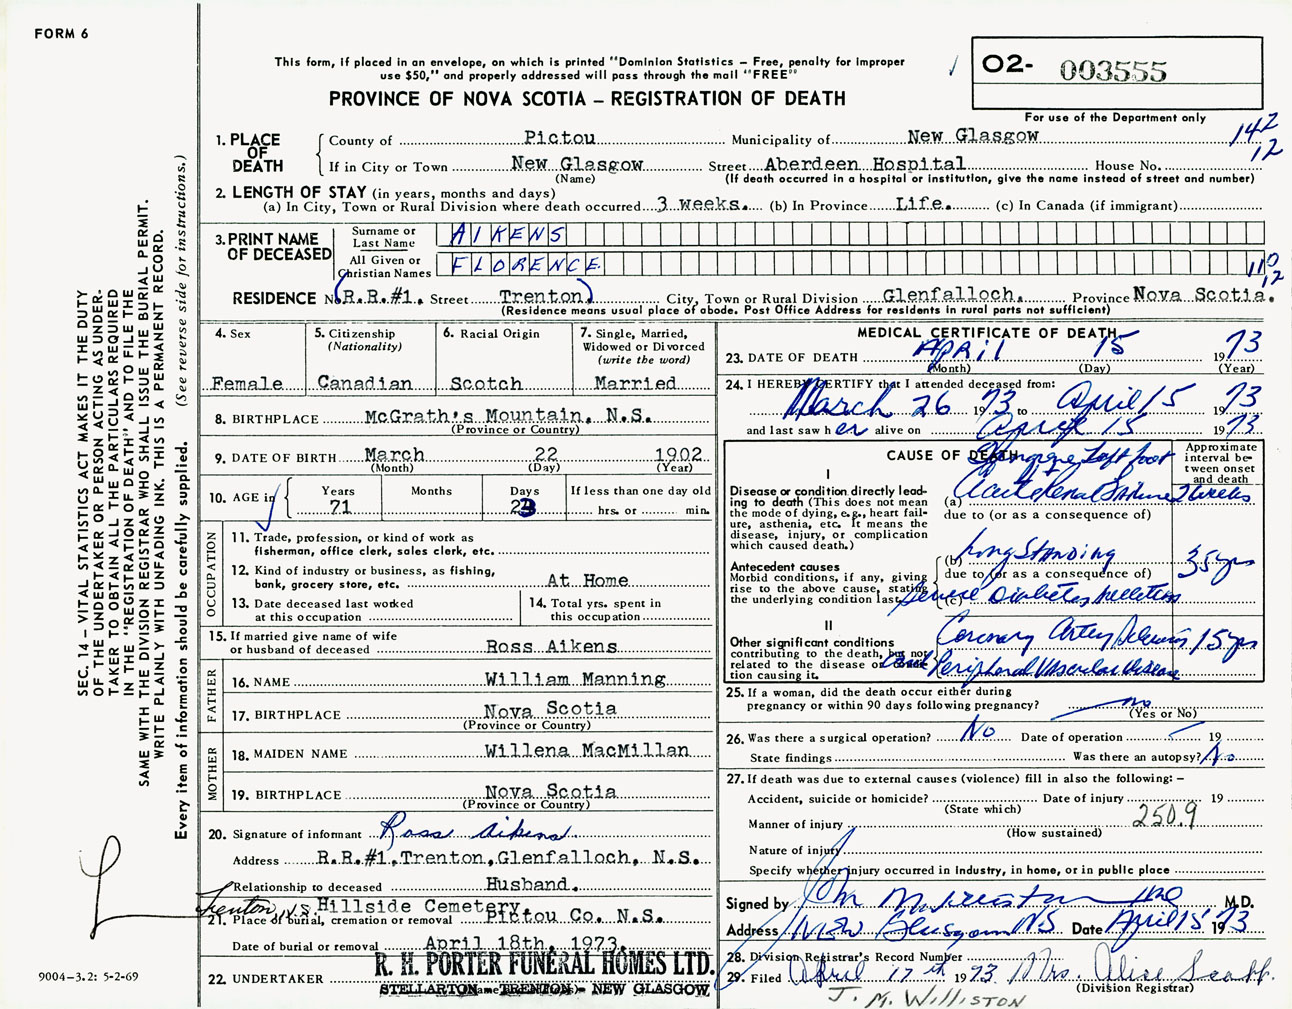 FORM 6
This form, if placed in an envelope, on which is printed "Dominion Statistics – Free, penalty for improper
use $50," and properly addressed will pass through the mail "FREE"
PROVINCE OF NOVA SCOTIA – REGISTRATION OF DEATH
O2- 003555
For use of the Department only
142
12
1. PLACE OF DEATH
County of Pictou Municipality of New Glasgow
If in City or Town New Glasgow Street Aberdeen Hospital House No.
(Name) (If death occurred in a hospital or institution, give the name instead of street and number)
2. LENGTH OF STAY (in years, months and days)
(a) In City, Town or Rural Division where death occurred 3 weeks. (b) In Province Life. (c) In Canada (if immigrant)
3. PRINT NAME OF DECEASED
Surname or Last Name AIKENS
All Given or Christian Names FLORENCE
110
12
RESIDENCE No. (R.R.#1, Street Trenton) City, Town or Rural Division Glenfalloch, Province Nova Scotia.
(Residence means usual place of abode. Post Office Address for residents in rural parts not sufficient)
4. Sex
Female
5. Citizenship
(Nationality)
Canadian
6. Racial Origin
Scotch
7. Single, Married,
Widowed or Divorced
(write the word)
Married
8. BIRTHPLACE McGrath's Mountain, N.S.
(Province or Country)
9. DATE OF BIRTH March 22 1902
(Month) (Day) (Year)
10. AGE in
Years 71
Months
Days 23
If less than one day old
hrs. or min.
OCCUPATION
11. Trade, profession, or kind of work as
fisherman, office clerk, sales clerk, etc.
12. Kind of industry or business, as fishing,
bank, grocery store, etc. At Home
13. Date deceased last worked
at this occupation
14. Total yrs. spent in
this occupation
15. If married give name of wife
or husband of deceased Ross Aikens
FATHER
16. NAME William Manning
17. BIRTHPLACE Nova Scotia
(Province or Country)
MOTHER
18. MAIDEN NAME Willena MacMillan
19. BIRTHPLACE Nova Scotia
(Province or Country)
20. Signature of informant Ross Aikens
Address R.R.#1,Trenton,Glenfalloch, N.S.
Relationship to deceased Husband.
Trenton N.S. Hillside Cemetery,
21. Place of burial, cremation or removal Pictou Co. N.S.
Date of burial or removal April 18th, 1973.
22. UNDERTAKER R. H. PORTER FUNERAL HOMES LTD.
STELLARTON – TRENTON – NEW GLASGOW
MEDICAL CERTIFICATE OF DEATH
23. DATE OF DEATH April 15 1973
(Month) (Day) (Year)
24. I HEREBY CERTIFY that I attended deceased from:
March 26 1973 to April 15 1973
and last saw her alive on April 15 1973
CAUSE OF DEATH
Approximate
interval be-
tween onset
and death
I
Gangrene Left foot
Disease or condition directly lead-
ing to death (This does not mean
the mode of dying, e.g., heart fail-
ure, asthenia, etc. It means the
disease, injury, or complication
which caused death.)
(a) Acute Renal Failure 2 weeks
due to (or as a consequence of)
Antecedent causes
Morbid conditions, if any, giving
rise to the above cause, stating
the underlying condition last.
(b) Long Standing 35 yrs
due to (or as a consequence of)
(c) Severe Diabetes Mellitus
II
Other significant conditions
contributing to the death, but not
related to the disease or condi-
tion causing it.
Coronary Artery 15 yrs
and Peripheral Vascular Disease
25. If a woman, did the death occur either during
pregnancy or within 90 days following pregnancy? no
(Yes or No)
26. Was there a surgical operation? No Date of operation 19
State findings Was there an autopsy? No
27. If death was due to external causes (violence) fill in also the following: –
Accident, suicide or homicide? Date of injury 19
(State which)
Manner of injury 250.9
(How sustained)
Nature of injury
Specify whether injury occurred in Industry, in home, or in public place
Signed by J M Williston M.D.
Address New Glasgow NS Date April 15 1973
28. Division Registrar's Record Number
29. Filed April 17th 1973 Mrs. Alice Scott.
(Division Registrar)
J. M. WILLISTON
SEC. 14 – VITAL STATISTICS ACT MAKES IT THE DUTY
OF THE UNDERTAKER OR PERSON ACTING AS UNDER-
TAKER TO OBTAIN ALL THE PARTICULARS REQUIRED
IN THE "REGISTRATION OF DEATH" AND TO FILE THE
SAME WITH THE DIVISION REGISTRAR WHO SHALL ISSUE THE BURIAL PERMIT.
WRITE PLAINLY WITH UNFADING INK. THIS IS A PERMANENT RECORD.
Every item of information should be carefully supplied. (See reverse side for instructions.)
9004–3.2: 5-2-69